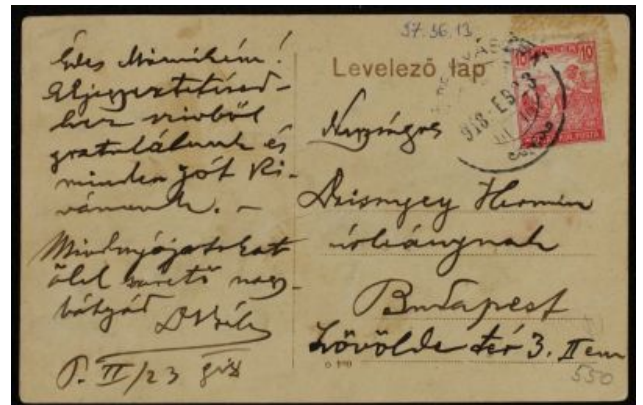 97.36.13
Levelező lap
10 10
918
Édes Mimikém!
Eljegyzésedhez szivből
gratulálunk és
minden jót ki-
vánunk. –
Mindnyájatokat
ölel szerető nagy-
bátyád
Béla
II/23
Nagyságos
Hermin
úrleánynak
Budapest
Lövölde tér 3. II em
550